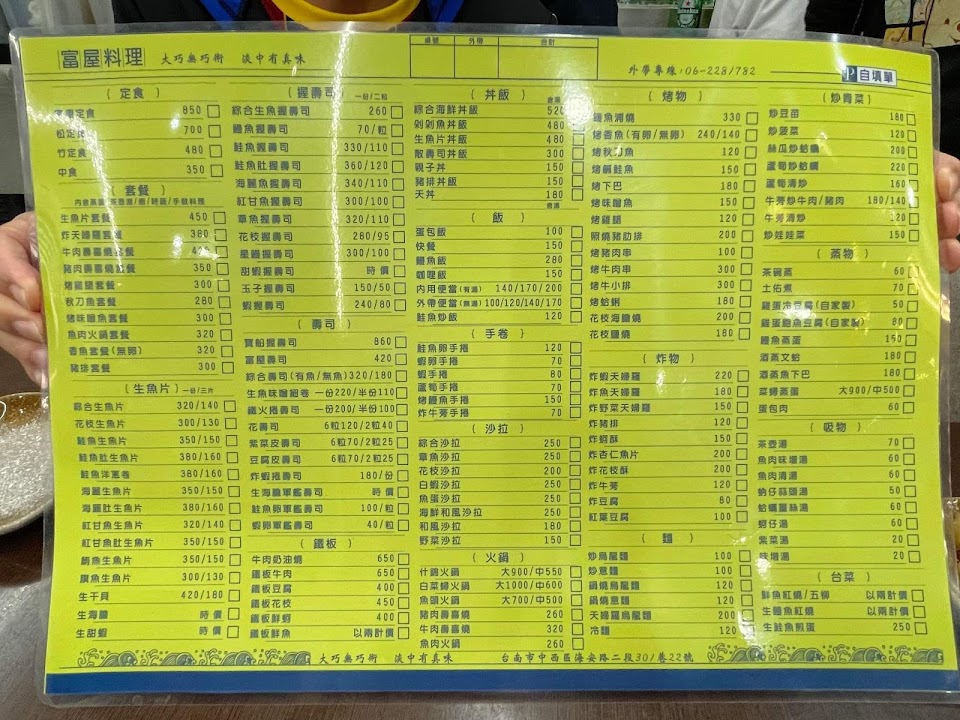 富屋料理
大巧無巧術 淡中有真味
桌號 外帶 合計
外帶專線:06-228/782
P 自填單
( 定食 )
定食 850
松定食 700
竹定食 480
中食 350
( 套餐 )
生魚片套餐 450
炸天婦羅套餐 380
牛肉壽喜燒套餐 420
豬肉壽喜燒套餐 350
烤雞腿套餐 300
秋刀魚套餐 280
烤味噌魚套餐 300
魚肉火鍋套餐 320
香魚套餐(無卵) 320
豬排套餐 300
( 生魚片 ) 一份/三片
綜合生魚片 320/140
花枝生魚片 300/130
鮭魚生魚片 350/150
鮭魚肚生魚片 380/160
鮭魚洋蔥卷 380/160
海鱺生魚片 350/150
海鱺肚生魚片 380/160
紅甘魚生魚片 320/140
紅甘魚肚生魚片 350/150
鮪魚生魚片 350/150
旗魚生魚片 300/130
生干貝 420/180
生海膽 時價
生甜蝦 時價
( 握壽司 ) 一份/二粒
綜合生魚握壽司 260
鰻魚握壽司 70/粒
鮭魚握壽司 330/110
鮭魚肚握壽司 360/120
海鱺魚握壽司 340/110
紅甘魚握壽司 300/100
章魚握壽司 320/110
花枝握壽司 280/95
星鰻握壽司 300/100
甜蝦握壽司 時價
玉子握壽司 150/50
蝦握壽司 240/80
( 壽司 )
寶船握壽司 860
富屋壽司 420
綜合壽司(有魚/無魚) 320/180
生魚味噌細卷 一份220/半份110
鐵火捲壽司 一份200/半份100
花壽司 6粒120/2粒40
紫菜皮壽司 6粒70/2粒25
豆腐皮壽司 6粒70/2粒25
炸蝦捲壽司 180/份
生海膽軍艦壽司 時價
鮭魚卵軍艦壽司 100/粒
蝦卵軍艦壽司 40/粒
( 鐵板 )
牛肉奶油燒 650
鐵板牛肉 650
鐵板豆腐 400
鐵板花枝 450
鐵板鮮蝦 400
鐵板鮮魚 以兩計價
( 丼飯 )
綜合海鮮丼飯 520
剁剁魚丼飯 480
生魚片丼飯 480
散壽司丼飯 300
親子丼 150
豬排丼飯 150
天丼 180
( 飯 )
蛋包飯 100
快餐 150
鰻魚飯 280
咖哩飯 150
內用便當(有湯) 140/170/200
外帶便當(無湯) 100/120/140/170
鮭魚炒飯 120
( 手卷 )
鮭魚卵手捲 120
蝦卵手捲 70
蝦手捲 80
蘆筍手捲 70
烤鰻魚手捲 70
炸牛蒡手捲 70
( 沙拉 )
綜合沙拉 250
章魚沙拉 250
花枝沙拉 200
白蝦沙拉 250
魚蛋沙拉 250
海鮮和風沙拉 250
和風沙拉 180
野菜沙拉 150
( 火鍋 )
什錦火鍋 大900/中550
白菜婦火鍋 大1000/中600
魚頭火鍋 大700/中500
豬肉壽喜燒 260
牛肉壽喜燒 320
魚肉火鍋 260
( 烤物 )
鰻魚蒲燒 330
烤香魚(有卵/無卵) 240/140
烤秋刀魚 120
烤鹹鮭魚 150
烤下巴 180
烤味噌魚 150
烤雞腿 120
照燒豬肋排 200
烤豬肉串 100
烤牛肉串 300
烤牛小排 300
烤蛤蜊 180
花枝海膽燒 200
花枝鹽燒 180
( 炸物 )
炸蝦天婦羅 220
炸魚天婦羅 180
炸野菜天婦羅 150
炸豬排 120
炸蝦酥 150
炸杏仁魚片 200
炸花枝酥 200
炸牛蒡 120
炸豆腐 80
紅葉豆腐 100
( 麵 )
炒烏龍麵 100
炒意麵 100
鍋燒烏龍麵 120
鍋燒意麵 120
天婦羅烏龍麵 200
冷麵 120
( 炒青菜 )
炒豆苗 180
炒菠菜 120
絲瓜炒蛤蠣 200
蘆筍炒蛤蠣 220
蘆筍清炒 160
牛蒡炒牛肉/豬肉 180/140
牛蒡清炒 120
炒娃娃菜 150
( 蒸物 )
茶碗蒸 60
土佑煮 70
雞蛋冷豆腐(自家製) 50
雞蛋鮑魚豆腐(自家製) 80
鰻魚蒸蛋 150
酒蒸文蛤 180
酒蒸魚下巴 180
菜婦蒸蛋 大900/中500
蛋包肉 60
( 吸物 )
茶壺湯 70
魚肉味噌湯 60
魚肉清湯 60
蚋仔蒜頭湯 50
蛤蠣薑絲湯 60
蚵仔湯 60
紫菜湯 20
味噌湯 20
( 台菜 )
鮮魚紅燒/五柳 以兩計價
生鱸魚紅燒 以兩計價
生鮭魚煎蛋 250
大巧無巧術 淡中有真味
台南市中西區海安路二段30/巷22號